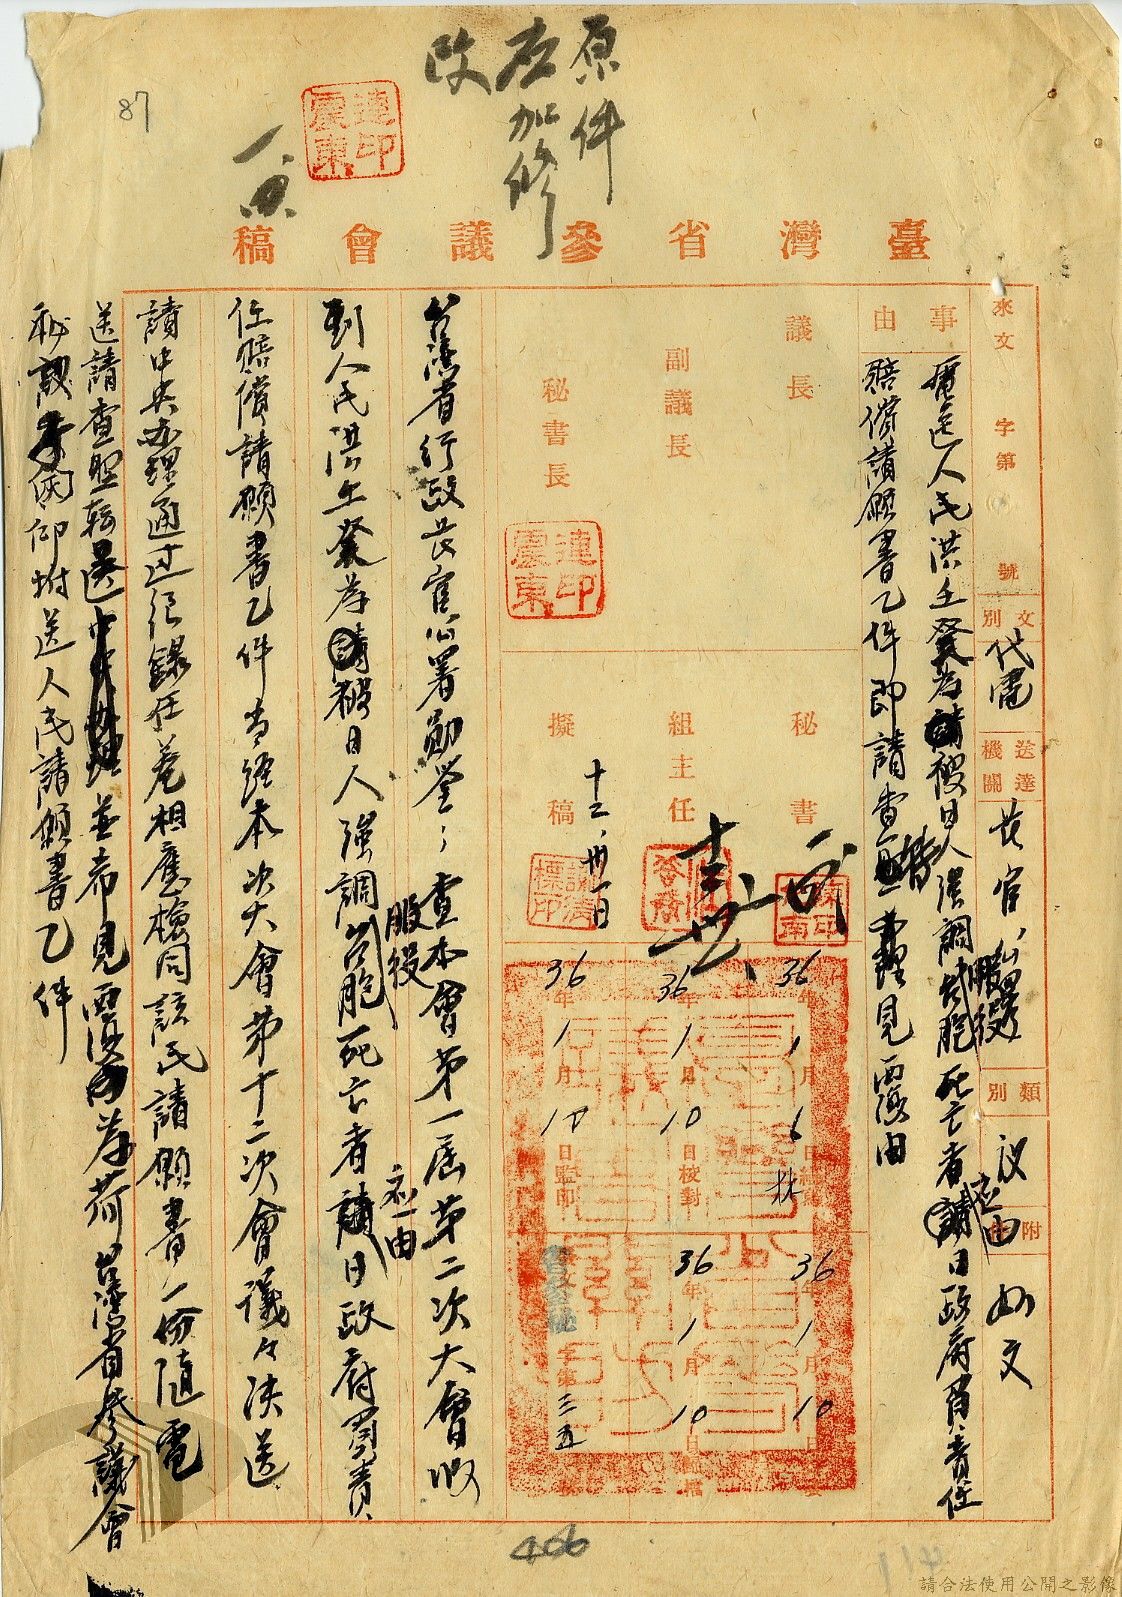 原件
应加修
改
87
連震東印
臺灣省參議會稿
來文 字第 號
文別 代電
送達機關 長官公署
類別 議
附 如文
事由
電送人民洪壬癸為請被日人强調台胞服役死亡者請應由日政府負責任
賠償請願書乙件即請查照轉 見覆由
議長
副議長
秘書長
連震東印
秘書
組主任
擬稿
十二、卅一日
36年1月6日
36年1月10日校對
36年1月10日監印
36年1月10日
36年1月10日
字第三五
台灣省行政長官公署勛鑒：查本會第一屆第二次大會收
到人民洪壬癸為請被日人强調台胞服役死亡者請應由日政府負責
任賠償請願書乙件當經本次大會第十二次會議議決送
請中央办理通过紀錄在卷相應檢同該民請願書一份隨電
送請查照轉送中央辦理並希見覆為荷台灣省參議會
秘議 叩附送人民請願書乙件
406
114
請合法使用公開之影像